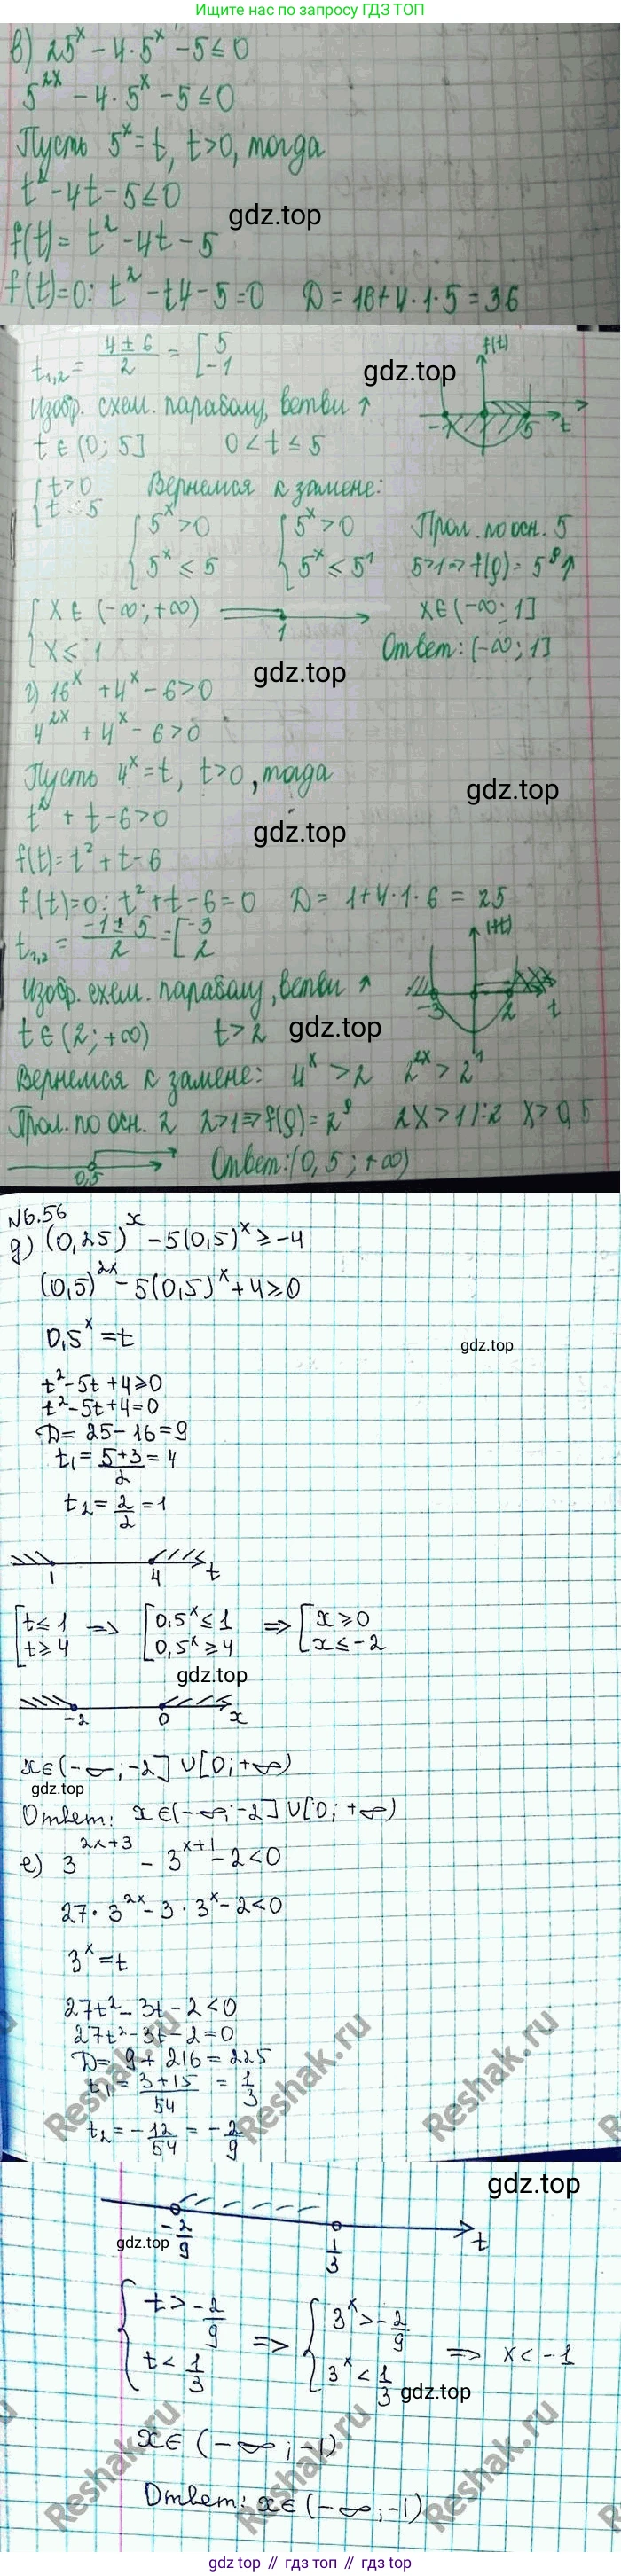 Ищите нас по запросу ГДЗ ТОП
в) 25^x - 4·5^x - 5 ≤ 0
5^2x - 4·5^x - 5 ≤ 0
Пусть 5^x = t, t>0, тогда
t² - 4t - 5 ≤ 0
gdz.top
f(t) = t² - 4t - 5
f(t)=0: t² - t4 - 5 = 0 D = 16+4·1·5 = 36
t1,2 = (4 ± 6)/2 = [5 -1
gdz.top
f(t)
Изобр. схем. параболу, ветви ↑
-1 5 t
t ∈ (0; 5] 0 < t ≤ 5
{t>0 t ≤ 5 Вернемся к замене:
{5^x > 0 {5^x > 0 Прол. по осн. 5
5^x ≤ 5 5^x ≤ 5^1 5>1 => f(g) = 5^g ↑
{x ∈ (-∞; +∞) 1 x ∈ (-∞; 1]
x ≤ 1 Ответ: (-∞; 1]
gdz.top
г) 16^x + 4^x - 6 > 0
4^2x + 4^x - 6 > 0
Пусть 4^x = t, t>0, тогда
gdz.top
t² + t - 6 > 0
gdz.top
f(t) = t² + t - 6
f(t)=0: t² + t - 6 = 0 D = 1+4·1·6 = 25
t1,2 = (-1 ± 5)/2 = [-3 2
f(t)
Изобр. схем. параболу, ветви ↑
-3 2 t
t ∈ (2; +∞) t > 2
gdz.top
Вернемся к замене: 4^x > 2 2^2x > 2^1
Прол. по осн. 2 2>1 => f(g) = 2^g 2x > 1 |:2 x > 0,5
0,5 Ответ: (0,5; +∞)
№6.56
д) (0,25)^x - 5(0,5)^x ≥ -4
(0,5)^2x - 5(0,5)^x + 4 ≥ 0
0,5^x = t
gdz.top
t² - 5t + 4 ≥ 0
t² - 5t + 4 = 0
D = 25 - 16 = 9
t1 = (5+3)/2 = 4
t2 = 2/2 = 1
1 4 t
[t ≤ 1 => [0,5^x ≤ 1 => [x ≥ 0
t ≥ 4 0,5^x ≥ 4 x ≤ -2
gdz.top
-2 0 x
x ∈ (-∞; -2] ∪ [0; +∞)
gdz.top
Ответ: x ∈ (-∞; -2] ∪ [0; +∞)
е) 3^2x+3 - 3^x+1 - 2 < 0
27·3^2x - 3·3^x - 2 < 0
3^x = t
27t² - 3t - 2 < 0
27t² - 3t - 2 = 0
D = 9 + 216 = 225
t1 = (3+15)/54 = 1/3
t2 = -12/54 = -2/9
Reshak.ru
Reshak.ru
Reshak.ru
gdz.top
-2/9 1/3 t
gdz.top
{t > -2/9 => {3^x > -2/9 => x < -1
t < 1/3 3^x < 1/3
gdz.top
x ∈ (-∞; -1)
Ответ: x ∈ (-∞; -1)
Reshak.ru
Reshak.ru
Reshak.ru
gdz.top // гдз топ // гдз.top